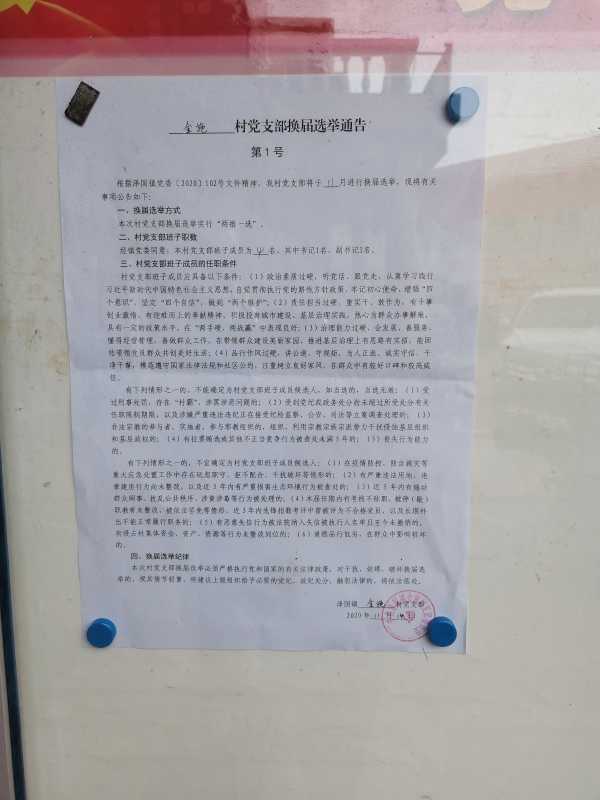 金施 村党支部换届选举通告
第 1 号
根据泽国镇党委〔2020〕102号文件精神，我村党支部将于 11 月进行换届选举，现将有关
事项公告如下：
一、换届选举方式
本次村党支部换届选举实行“两推一选”。
二、村党支部班子职数
经镇党委同意：本村党支部班子成员为 4 名，其中书记1名，副书记1名。
三、村党支部班子成员的任职条件
村党支部班子成员应具备以下条件：（1）政治素质过硬，听党话、跟党走，认真学习践行
习近平新时代中国特色社会主义思想，自觉贯彻执行党的路线方针政策，牢记初心使命，增强“四
个意识”、坚定“四个自信”、做到“两个维护”；（2）责任担当过硬，重实干、敢作为，有干事
创业激情，有迎难而上的奉献精神，积极投身城市建设、基层治理实践，热心为群众办事解难，
具有一定的政策水平，在“两手硬、两战赢”中表现良好；（3）治理能力过硬，会发展、善服务，
懂得经营管理，善做群众工作，在带领群众建设美丽家园、推进基层治理上有思路有实招，能团
结带领党员群众共创美好生活；（4）品行作风过硬，讲公道、守规矩，为人正派、诚实守信、干
净干事，模范遵守国家法律法规和社区公约，注重树立良好家风，在群众中有较好口碑和较高威
信。
有下列情形之一的，不能确定为村党支部班子成员候选人，如当选的，当选无效：（1）受
过刑事处罚，存在“村霸”、涉黑涉恶问题的；（2）受到党纪政务处分尚未超过所受处分有关
任职限制期限，以及涉嫌严重违法违纪正在接受纪检监察、公安、司法等立案调查处理的；（3）
非法宗教的参与者、实施者，参与邪教组织的，组织、利用宗教宗族宗派势力干扰侵蚀基层组织
和基层政权的；（4）有拉票贿选或其他不正当竞争行为被查处未满5年的；（5）丧失行为能力
的。
有下列情形之一的，不宜确定为村党支部班子成员候选人：（1）在疫情防控、防台减灾等
重大应急处置工作中存在玩忽职守、拒不配合、干扰破坏等情形的；（2）有严重违法用地、违
章建房行为未整改，以及近3年内有严重损害生态环境行为被查处的；（3）近5年内有煽动
群众闹事、扰乱公共秩序、涉黄涉毒等行为被处理的；（4）本届任期内有考核不称职、被停（撤）
职教育未整改、被依法罢免等情形，近3年内先锋指数考评中曾被评为不合格党员，以及长期外
出不能正常履行职务的；（5）有恶意失信行为被法院纳入失信被执行人名单且至今未撤销的，
有侵占村集体资金、资产、资源等行为未整改到位的；（6）道德品行低劣，在群众中影响较坏
的。
四、换届选举纪律
本次村党支部换届选举必须严格执行党和国家的有关法律政策，对干扰、妨碍、破坏换届选
举的，视其情节轻重，将建议上级组织给予必要的党纪、政纪处分，触犯法律的，将依法惩处。
泽国镇 金施 村党支部
2020 年 11 月